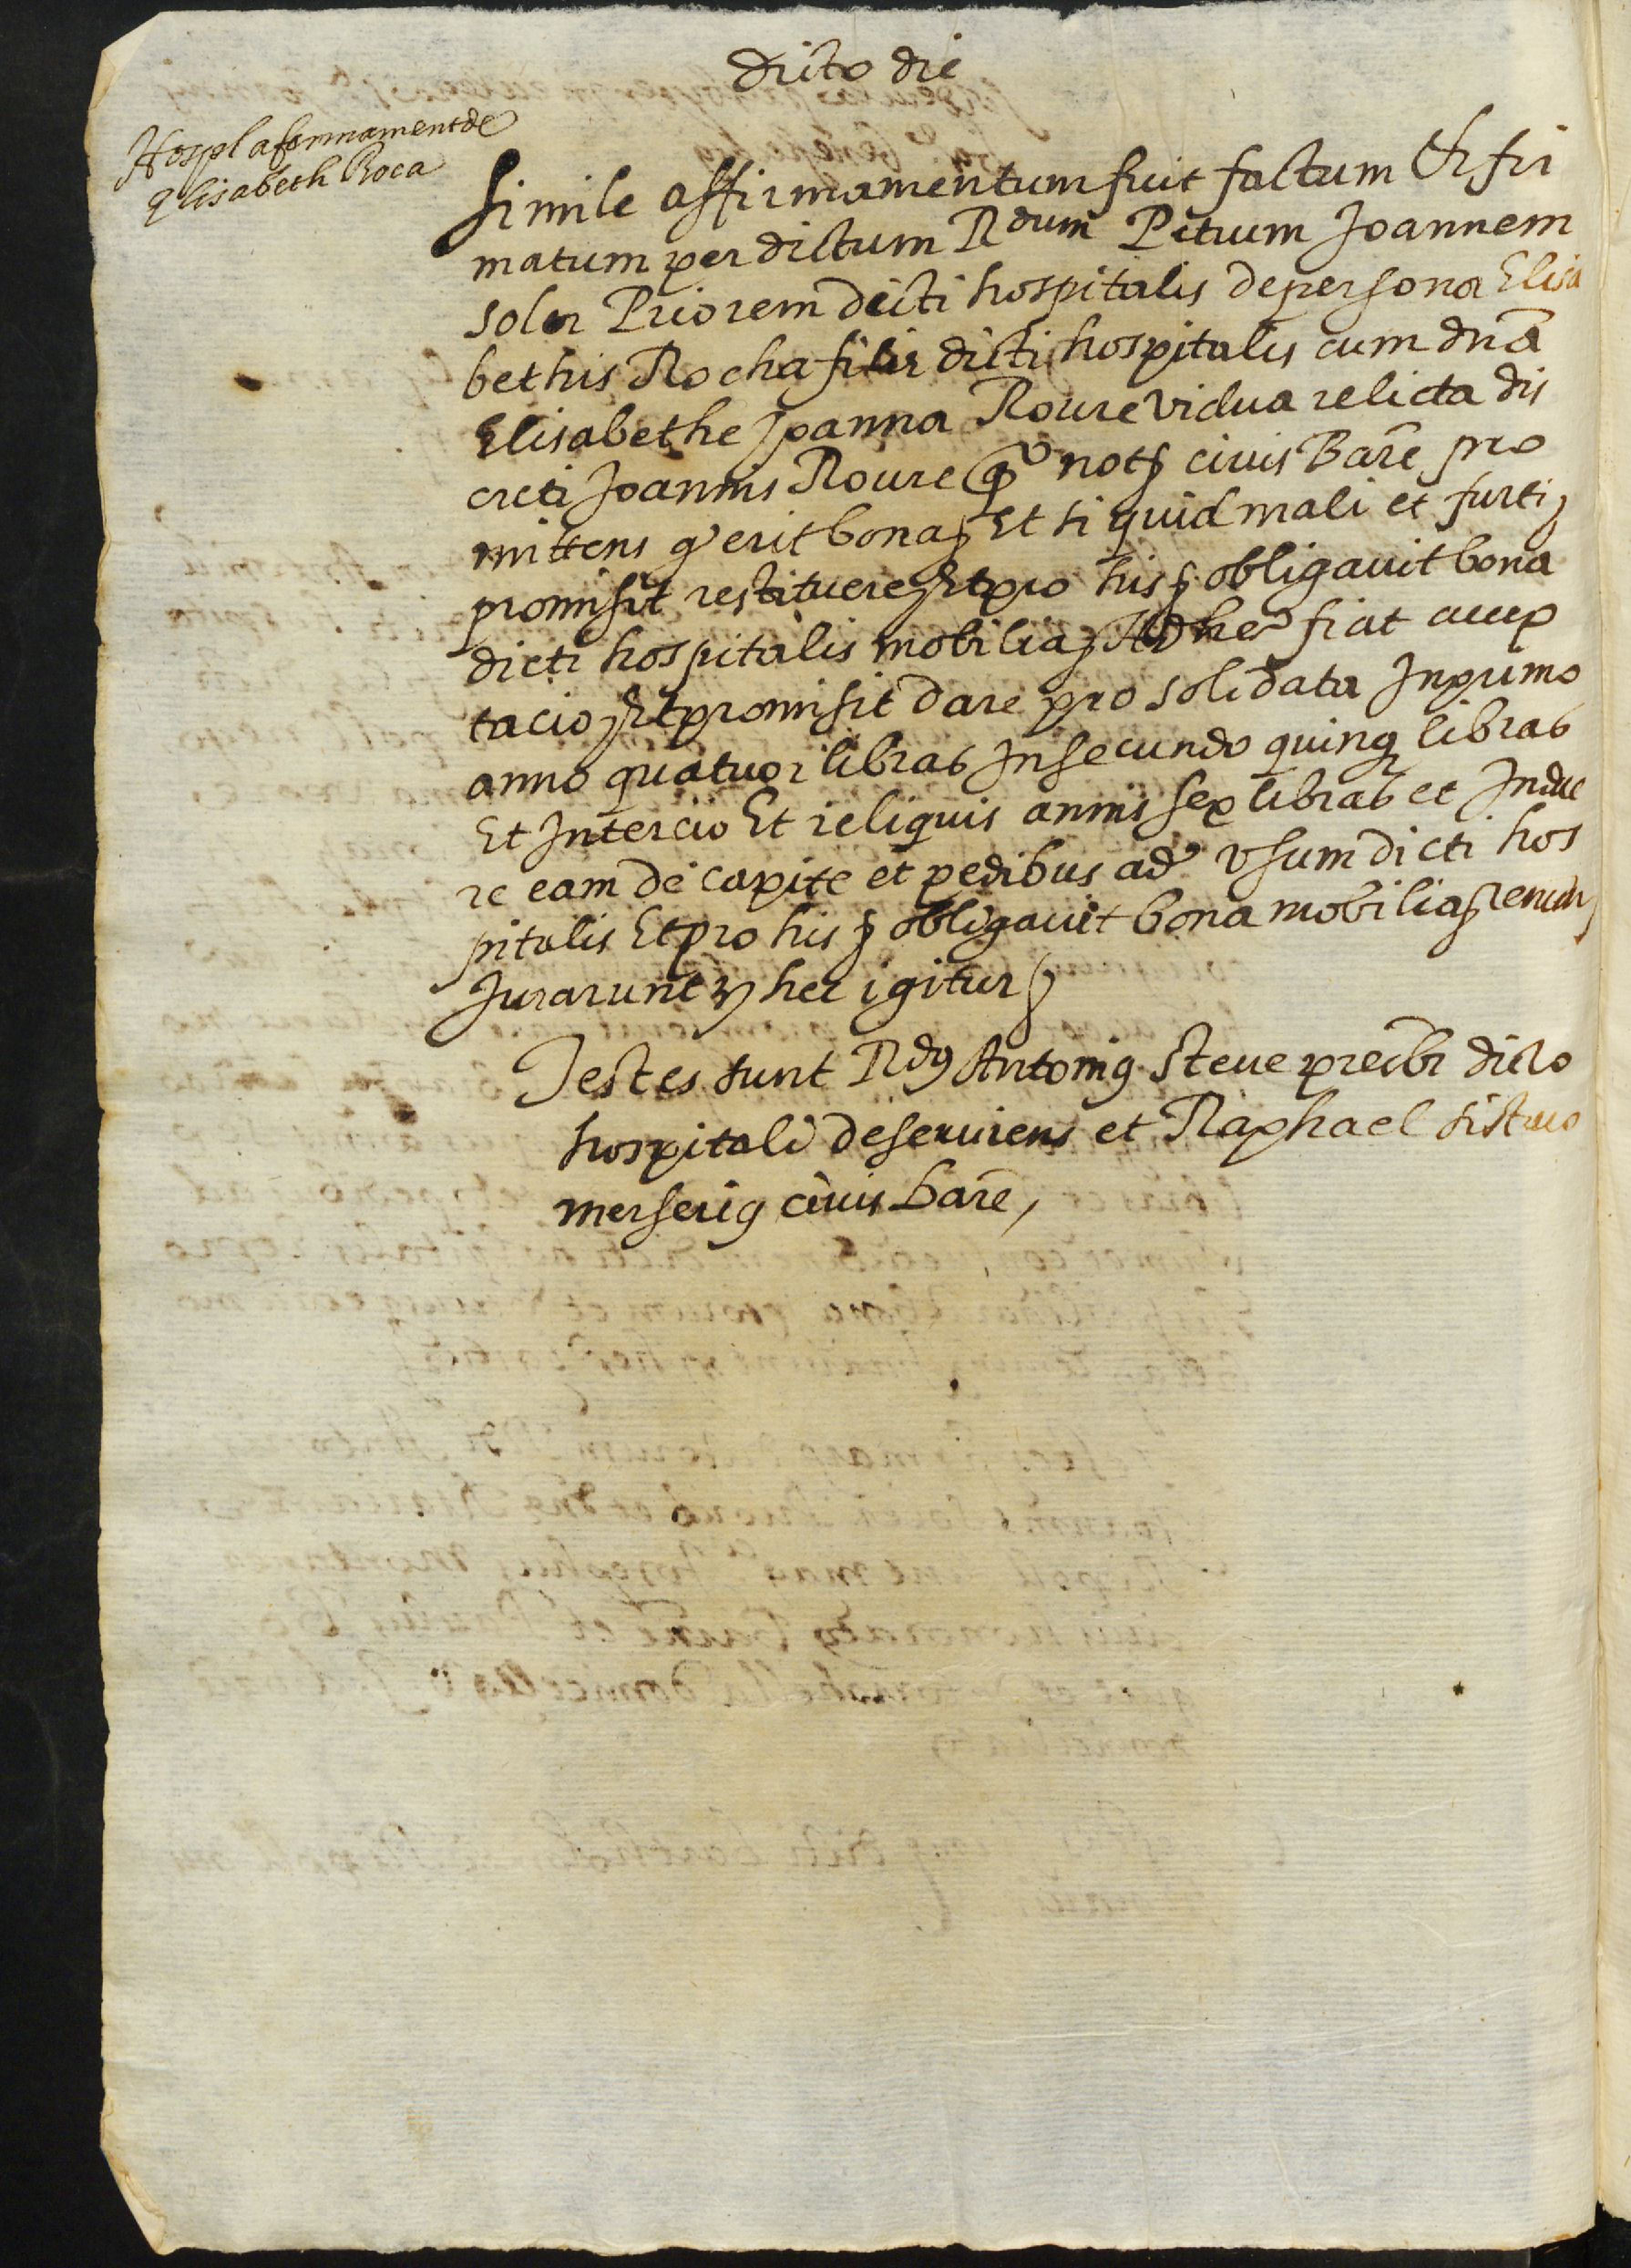 dicto die
Hospl afermament de
Elisabeth Roca
Simile affirmamentum fuit factum Et fir
matum per dictum Rdum Petrum Joannem
soler Priorem dicti hospitalis de persona Elisa
bethis Rocha filie dicti hospitalis cum dna
Elisabethe Joanna Roure vidua relicta dis
creti Joannis Roure qo notj civis Bare pro
mittens q erit bona Et si quid mali et furti
promisit restituere Et pro his obligavit bona
dicti hospitalis mobilia Ad hec fiat accep
tacio Et promisit dare pro solidata In primo
anno quatuor libras In secundo quinq libras
Et In tercio Et reliquis annis sex libras et Indue
re eam de capite et pedibus ad usum dicti hos
pitalis Et pro his obligavit bona mobilia
Jurarunt hec igitur
Testes sunt Rdus Antonius Steve preibr dicto
hospitali deserviens et Raphael
merserius civis Bare,